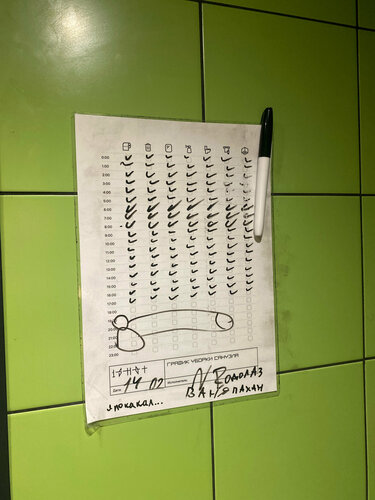 0:00
1:00
2:00
3:00
4:00
5:00
6:00
7:00
8:00
9:00
10:00
11:00
12:00
13:00
14:00
15:00
16:00
17:00
18:00
19:00
20:00
23:00
ГРАФИК УБОРКИ САНУЗЛА
Дата 14 02 Исполнитель ВОДОЛАЗ
ВАНЯ ПАХАН
я покакал...